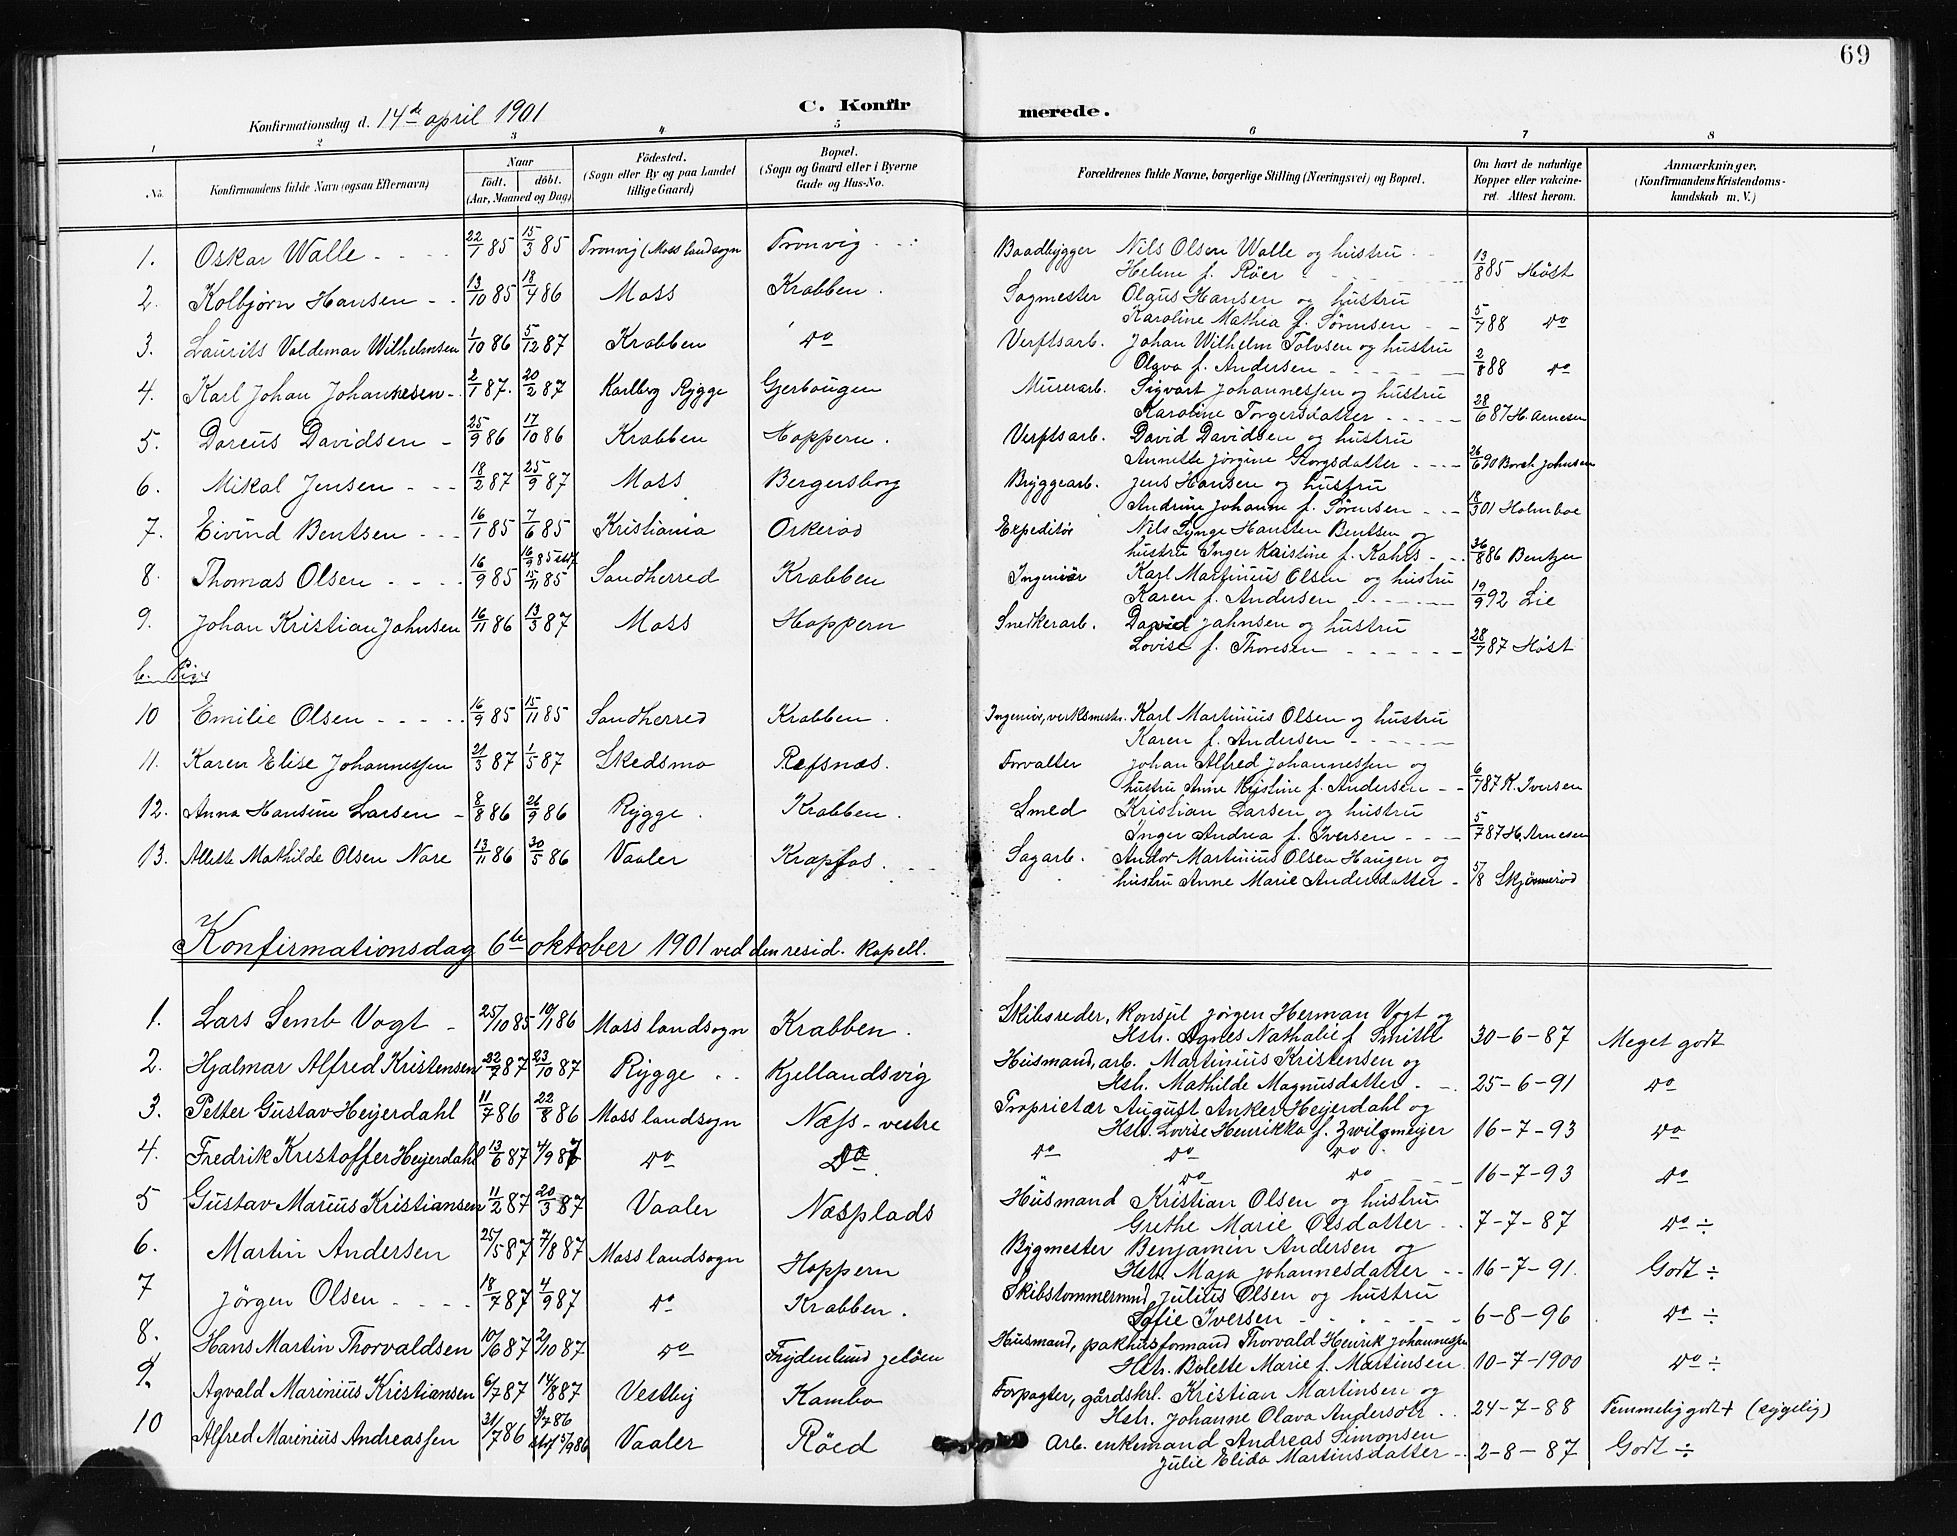 69
C. Konfirmerede.
Konfirmationsdag d. 14de april 1901
1 2 3 4 5 6 7 8
No. Konfirmandens fulde Navn (ogsaa Efternavn) Naar födt. döbt. (Aar, Maaned og Dag) Födested. (Sogn eller By og paa Landet tillige Gaard) Bopæl. (Sogn og Gaard eller i Byerne Gade og Hus-No. Forældrenes fulde Navne, borgerlige Stilling (Næringsvei) og Bopæl. Om havt de naturlige Kopper eller vakcineret. Attest herom. Anmærkninger, (Konfirmandens Kristendomskundskab m. V.)
1. Oskar Walle 22/1 85 15/3 85 Tronvig (Moss landsogn Tronvig Baadbygger Nils Olsen Walle og hustru
Helene f. Röer 13/8 85 Höst
2. Kolbjørn Hansen 13/10 85 18/4 86 Moss Krabben Sagmester Olaus Hansen og hustru
Karoline Mathea f. Sørensen 5/7 88 do
3. Laurits Valdemar Wilhelmsen 1/10 86 5/12 87 Krabben do Verftsarb. Johan Wilhelm Tolvsen og hustru
Olava f. Andersen 2/8 88 do
4. Karl Johan Johannesen 2/1 87. 20/2 87 Karlberg Rygge Gjerbougen Murerarb. Sigvart Johannessen og hustru
Karoline Torgersdatter 28/6 87 H. Arnesen
5. Dareus Davidsen 25/9 86 17/10 86 Krabben Hoppern. Verftsarb. David Davidsen og hustru
Annette Jørgine Georgsdatter 26/6 90 Borch Johnsen
6. Mikal Jensen 18/2 87 25/9 87 Moss Bergersborg Bryggearb. Jens Hansen og hustru
Andrine Johanne f. Sørensen 18/3 01 Holmboe
7. Eivind Bentsen 16/1 85 7/6 85 Kristiania Orkerød Expeditör Nils Lynge Hansten Bentsen og
hustru Inger Kristine f. Kahrs 86 Bentzen
8. Thomas Olsen 16/9 85 16/9 85 15/11 85 Sandherred Krabben Ingeniör Karl Martinius Olsen og hustru
Karen f. Andersen 19/9 92 Lie
9. Johan Kristian Johnsen 16/11 86 13/3 87 Moss Hoppern Snedkerarb. David Johnsen og hustru
Lovise f. Thoresen 28/7 87 Höst
b. Piger
10 Emilie Olsen 16/9 85 15/11 85 Sandherred Krabben. Ingeniør, verksmestr. Karl Martinius Olsen og hustru
Karen f. Andersen
11. Karen Elise Johannessen 21/3 87 1/5 87 Skedsmo Refsnæs. Forvalter Johan Alfred Johannessen og
hustru Anne Kristine f. Andersen 6/7 87 K. Iversen
12. Anna Hansine Larsen 8/8 86 26/9 86 Rygge. Krabben. Smed Kristian Larsen og hustru
Inger Andrea f. Iversen 5/7 87 H. Arnesen
13. Allette Mathilde Olsen Nore 13/11 86 30/5 86 Vaaler Krapfos. Sagarb. Andor Martinius Olsen Haugen og
hustru Anne Marie Andersdatter 5/8 Skjønnerød
Konfirmationsdag 6te oktober 1901 ved den resid. Kapell.
1. Lars Semb Vogt 25/10 85 10/1 86 Moss landsogn Krabben. Skibsreder, Konsul Jørgen Herman Vogt og
Hstr. Agnes Nathalie f Smith 30-6-87 Meget godt
2. Hjalmar Alfred Kristensen 22/7 87 23/10 87 Rygge Kjellandsvig Husmand, arb. Martinius Kristensen og
Hstr. Mathilde Magnusdatter 25-6-91 do
3. Petter Gustav Heyerdahl 11/7 86 22/8 86 Moss landsogn Næss-vestre Proprietær August Anker Heyerdahl og
Hstr. Lovise Henrikka f. Zwilgmeyer 16-7-93 do
4. Fredrik Kristoffer Heyerdahl 13/6 87 4/9 87 do do do do do
do do 16-7-93 do
5 Gustav Marius Kristiansen 11/2 87 20/3 87 Vaaler Næsplads Husmand Kristian Olsen og hustru
Grethe Marie Olsdatter 7-7-87 do ÷
6. Martin Andersen 25/5 87 7/8 87 Moss landsogn Hoppern Bygmester Benjamin Andersen og
Hstr. Maja Johannesdatter 16-7-91. Godt ÷
7 Jörgen Olsen 18/7 87 4/9 87 do Krabben. Skibstømmermnd Julius Olsen og hustru
Sofie Iversen 6-8-96 do ÷
8. Hans Martin Thorvaldsen 10/6 87 2/10 87 do Frydenlund Jeløen Husmand, pakhusformand Thorvald Henrik Johannessen
Hstr. Bolette Marie f. Martinsen 10-7-1900 do ÷
9. Agvald Marinius Kristiansen 6/7 87 14/8 87 Vestby Kambo Forpagter, gårdskrl. Kristian Martinsen og
Hstr. Johanne Olava Andersdtr 24-7-88 Temmelig godt + (sygelig)
10 Alfred Marinius Andreassen 31/7 86 86 stf 5/9 86 Vaaler Röed Arb. enkemand Andreas Simonsen
Julie Elida Martinsdatter 2-8-87 Godt ÷